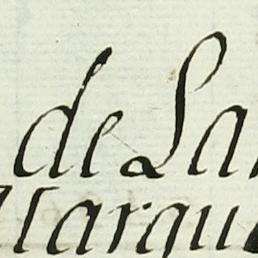 de La
Marqu